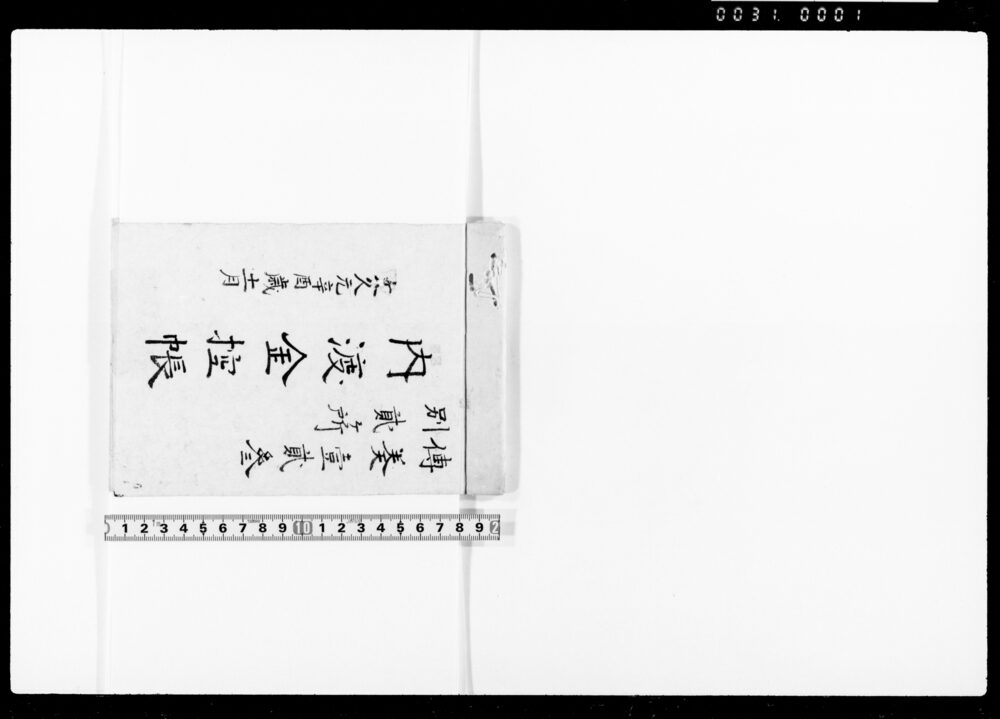 0031. 0001
傳奏壹貳叄
別貳所
内渡金控帳
文久元辛酉歳十一月
1 2 3 4 5 6 7 8 9 10 1 2 3 4 5 6 7 8 9 2